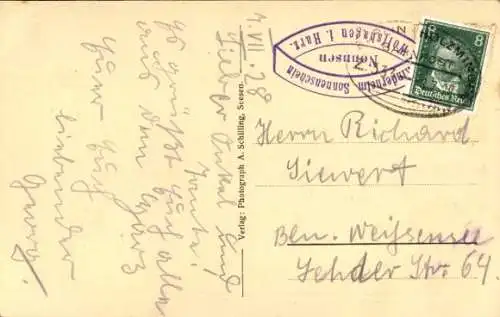 4. VII. 28
Lieber Onkel und
Tante!
Es grüßt Euch alle
aus dem Harz
Euer Euch
liebender
Georg.
Verlag: Photograph A. Schilling, Seesen.
Kinderheim Sonnenschein
Nonnsen
Wolfshagen i. Harz.
8 8
Deutsches Reich
Herrn Richard
Siewert
Bln. Weissensee
Lehder Str. 64